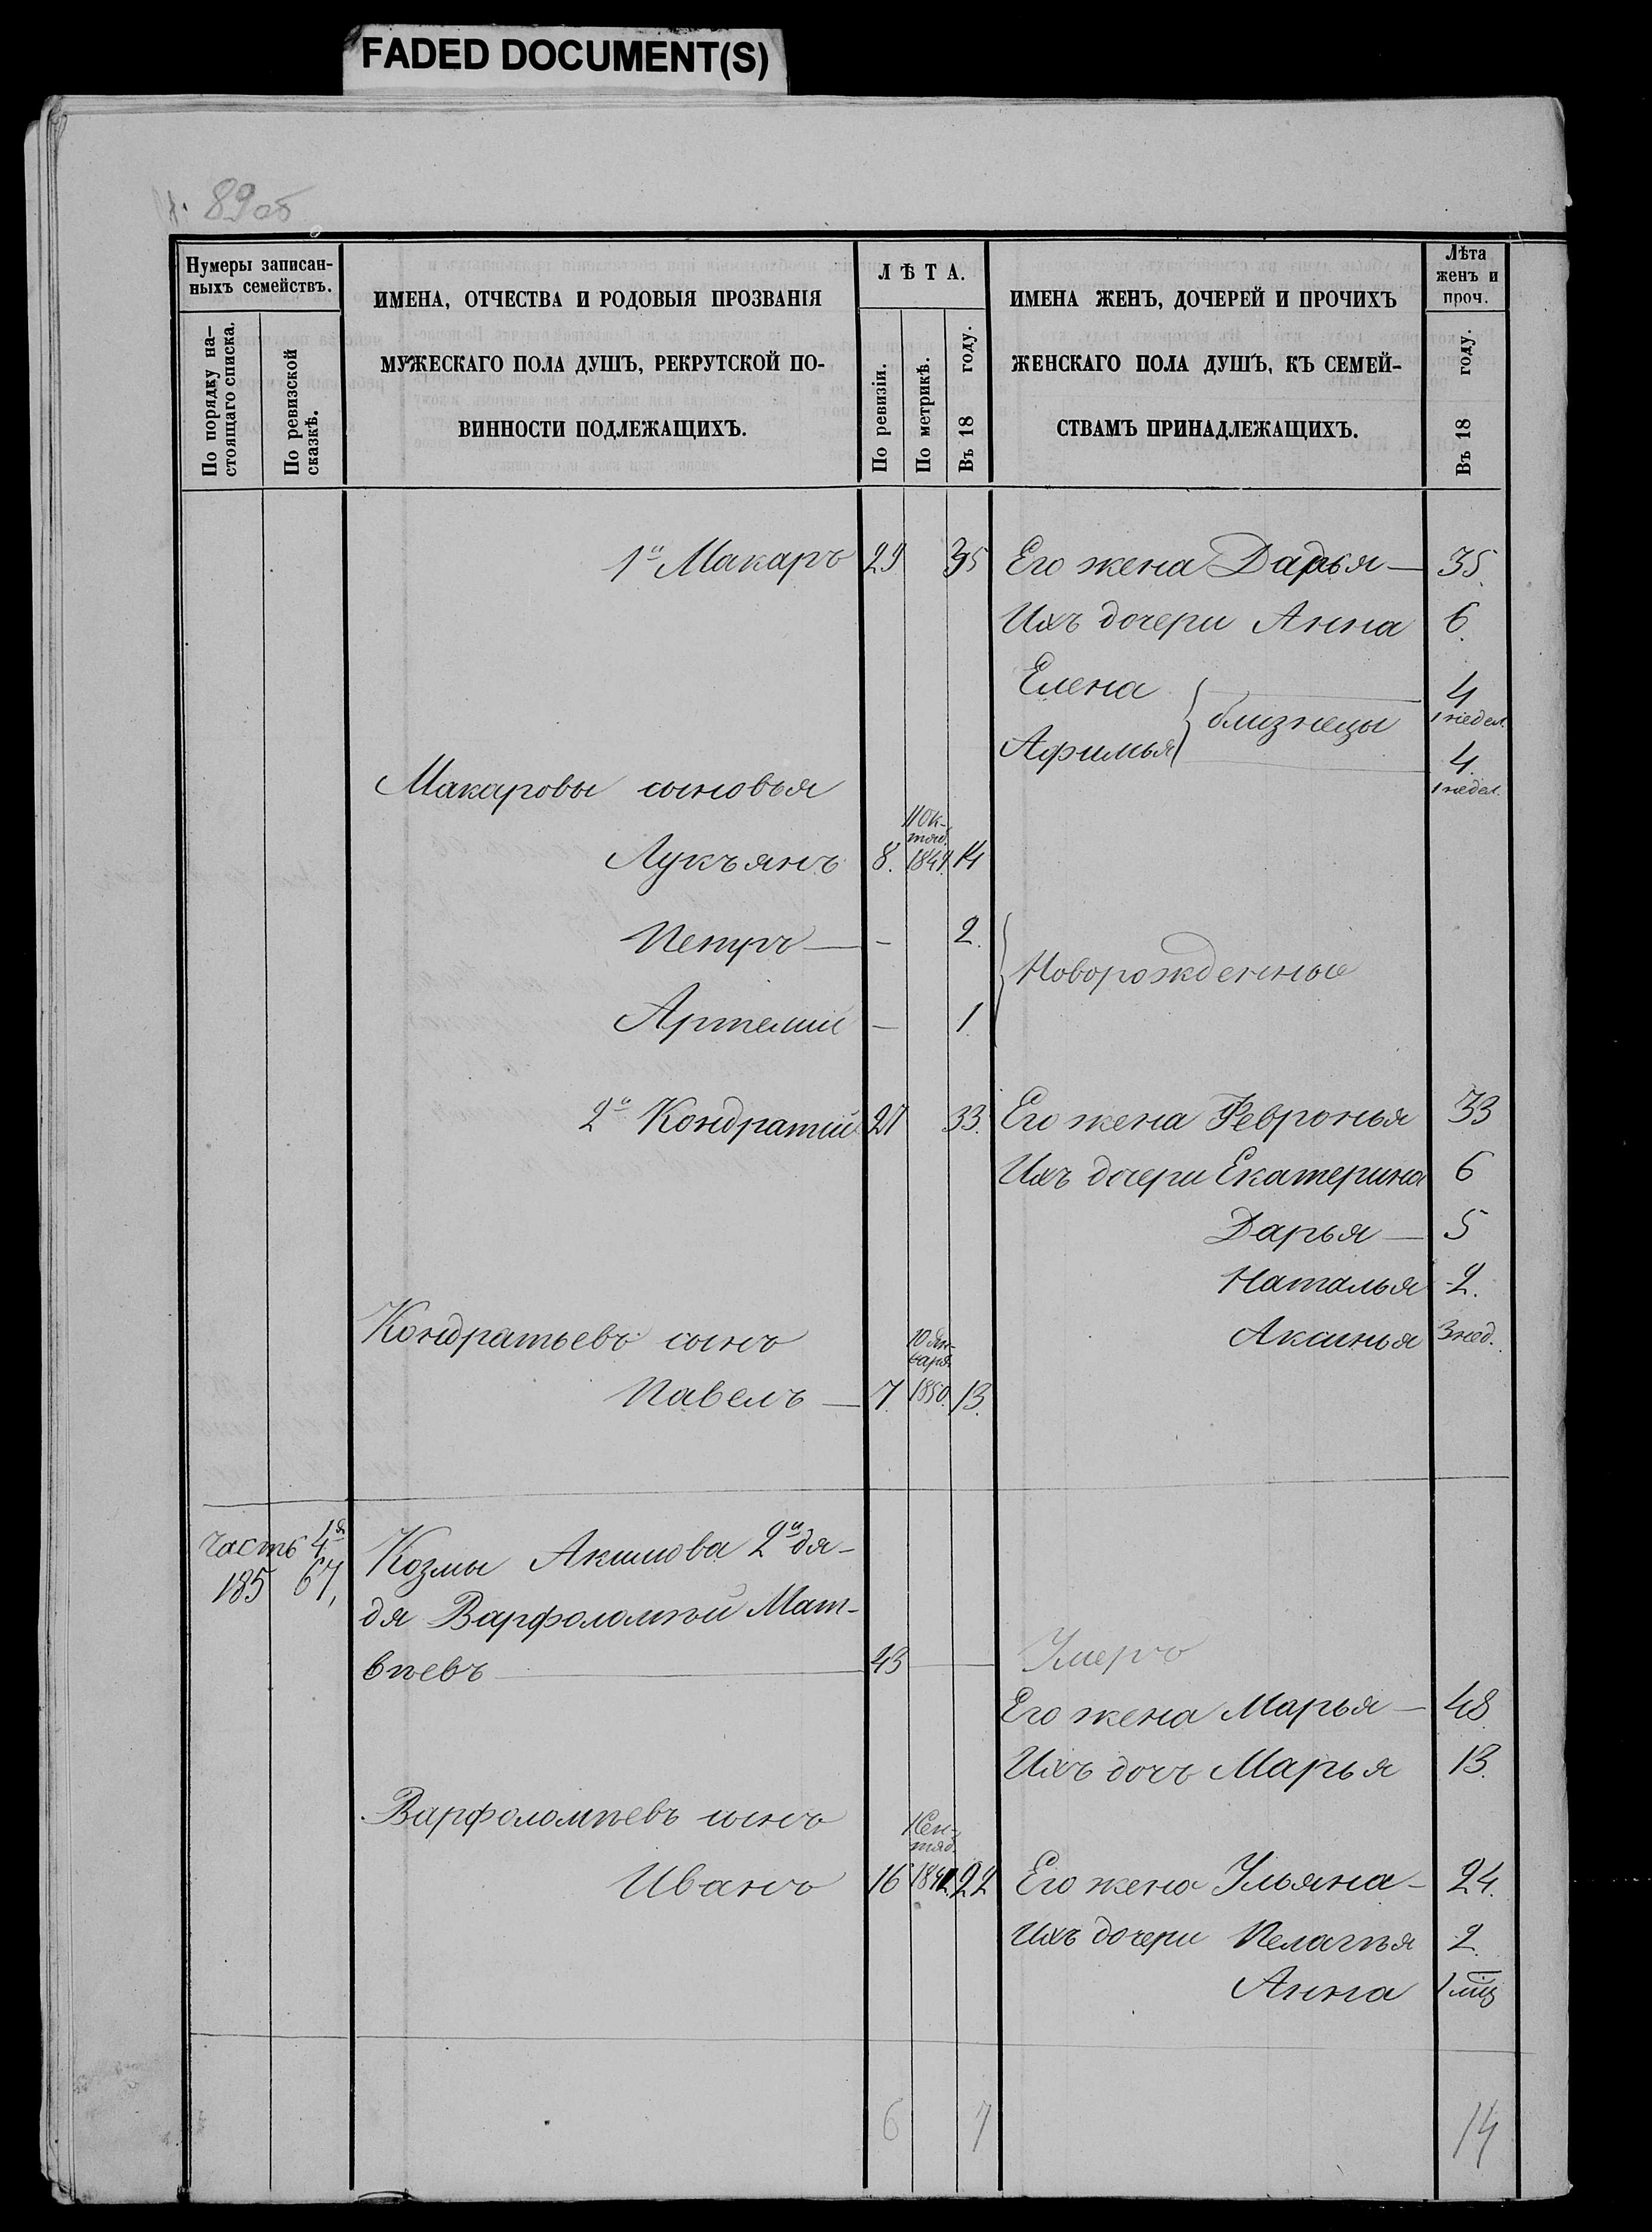 FADED DOCUMENT(S)
89об
Нумеры записан-
ныхъ семействъ.
По порядку на-
стоящаго списка.
По ревизской
сказкѣ.
ИМЕНА, ОТЧЕСТВА И РОДОВЫЯ ПРОЗВАНІЯ
МУЖЕСКАГО ПОЛА ДУШЪ, РЕКРУТСКОЙ ПО-
ВИННОСТИ ПОДЛЕЖАЩИХЪ.
ЛѢТА.
По ревизіи.
По метрикѣ.
Въ 18 году.
ИМЕНА ЖЕНЪ, ДОЧЕРЕЙ И ПРОЧИХЪ
ЖЕНСКАГО ПОЛА ДУШЪ, КЪ СЕМЕЙ-
СТВАМЪ ПРИНАДЛЕЖАЩИХЪ.
Лѣта
женъ и
проч.
Въ 18 году.
1й Макаръ 29 35 Его жена Дарья — 35.
Ихъ дочери Анна 6.
Елена 4
близнецы 1 недел.
Афимья 4.
1 недел.
Макаровы сыновья
11 Ок-
тяб.
Лукъянъ 8. 1849. 14
Петръ — - 2.
Новорожденные
Артемій — 1
2й Кондратій 27 33. Его жена Февронья 33
Ихъ дочери Екатерина 6
Дарья — 5
Наталья 2.
Кондратьевъ сынъ 10 Ян- Аксинья 3 нед.
варя
Павелъ — 7. 1850. 13.
Часть 4я
185 67,
Козмы Акимова 2й дя-
дя Варфоломѣй Мат-
вѣевъ 43 — Умеръ
Его жена Марья — 48.
Ихъ дочь Марья 13.
Варфоломѣевъ сынъ
1 Сен-
тяб.
Иванъ 16 1841. 22 Его жена Ульяна — 24.
Ихъ дочери Пелагѣя 2.
Анна 1 мц
6 7 14